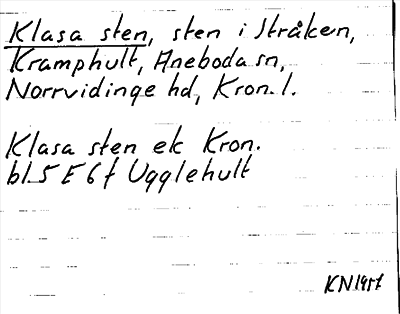 Klasa sten, sten i Stråken,
Kramphult, Aneboda sn,
Norrvidinge hd, Kron. l.
Klasa sten ek Kron.
bl. 5 E 6 f Ugglehult
KN 1957